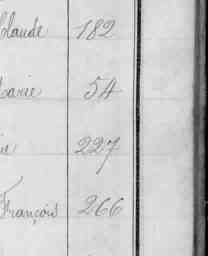 Claude 182
Marie 54
ie 227
François 266